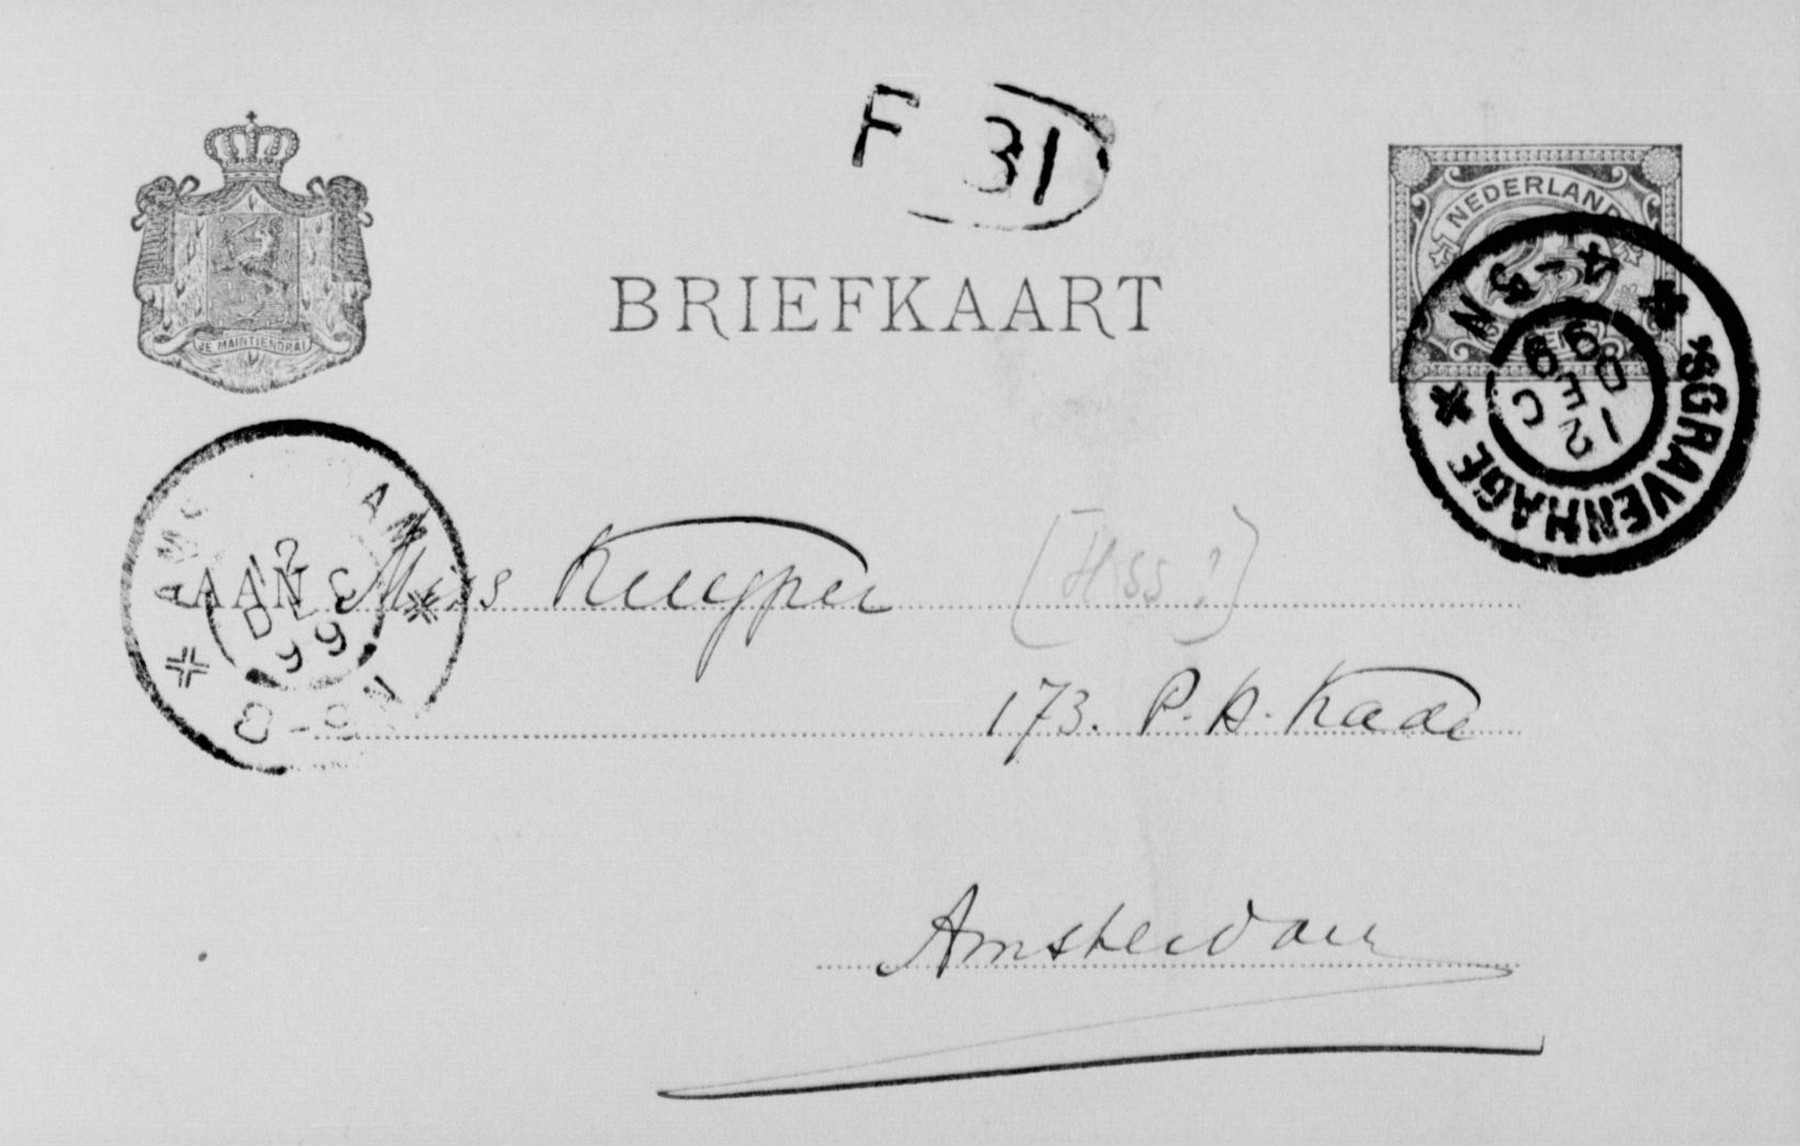 F 31
NEDERLAND
JE MAINTIENDRAI
BRIEFKAART
4-5 N
12 DEC 99
'SGRAVENHAGE
AMS AM
12 DEC 99
8-9 N
AAN Miss Kuyper [Hss?]
173. P. H. Kade
Amsterdam